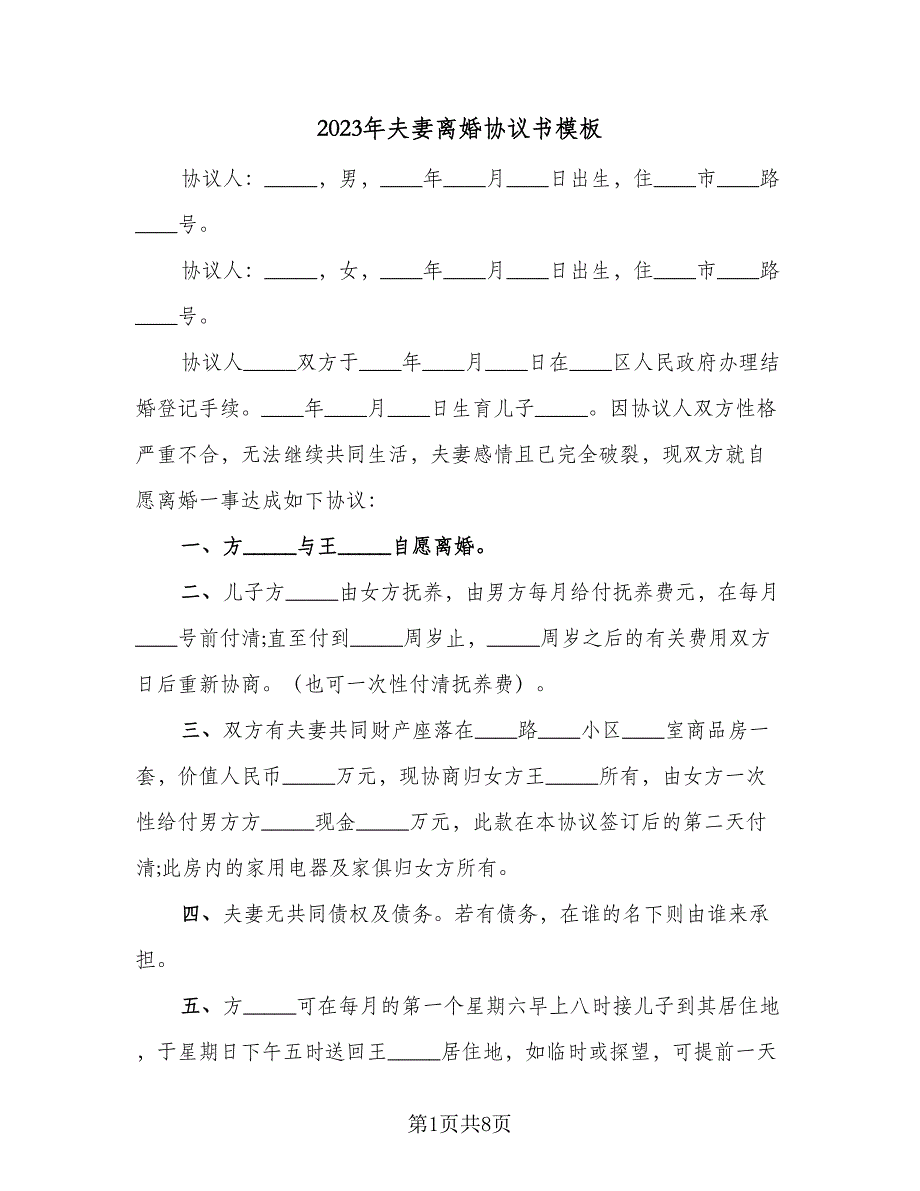 2023年夫妻离婚协议书模板
协议人：_____，男，____年____月____日出生，住____市____路
____号。
协议人：_____，女，____年____月____日出生，住____市____路
____号。
协议人_____双方于____年____月____日在____区人民政府办理结
婚登记手续。____年____月____日生育儿子_____。因协议人双方性格
严重不合，无法继续共同生活，夫妻感情且已完全破裂，现双方就自
愿离婚一事达成如下协议：
一、方_____与王_____自愿离婚。
二、儿子方_____由女方抚养，由男方每月给付抚养费元，在每月
____号前付清;直至付到_____周岁止，_____周岁之后的有关费用双方
日后重新协商。（也可一次性付清抚养费）。
三、双方有夫妻共同财产座落在____路____小区____室商品房一
套，价值人民币_____万元，现协商归女方王_____所有，由女方一次
性给付男方方_____现金_____万元，此款在本协议签订后的第二天付
清;此房内的家用电器及家俱归女方所有。
四、夫妻无共同债权及债务。若有债务，在谁的名下则由谁来承
担。
五、方_____可在每月的第一个星期六早上八时接儿子到其居住地
，于星期日下午五时送回王_____居住地，如临时或探望，可提前一天
第1页共8页